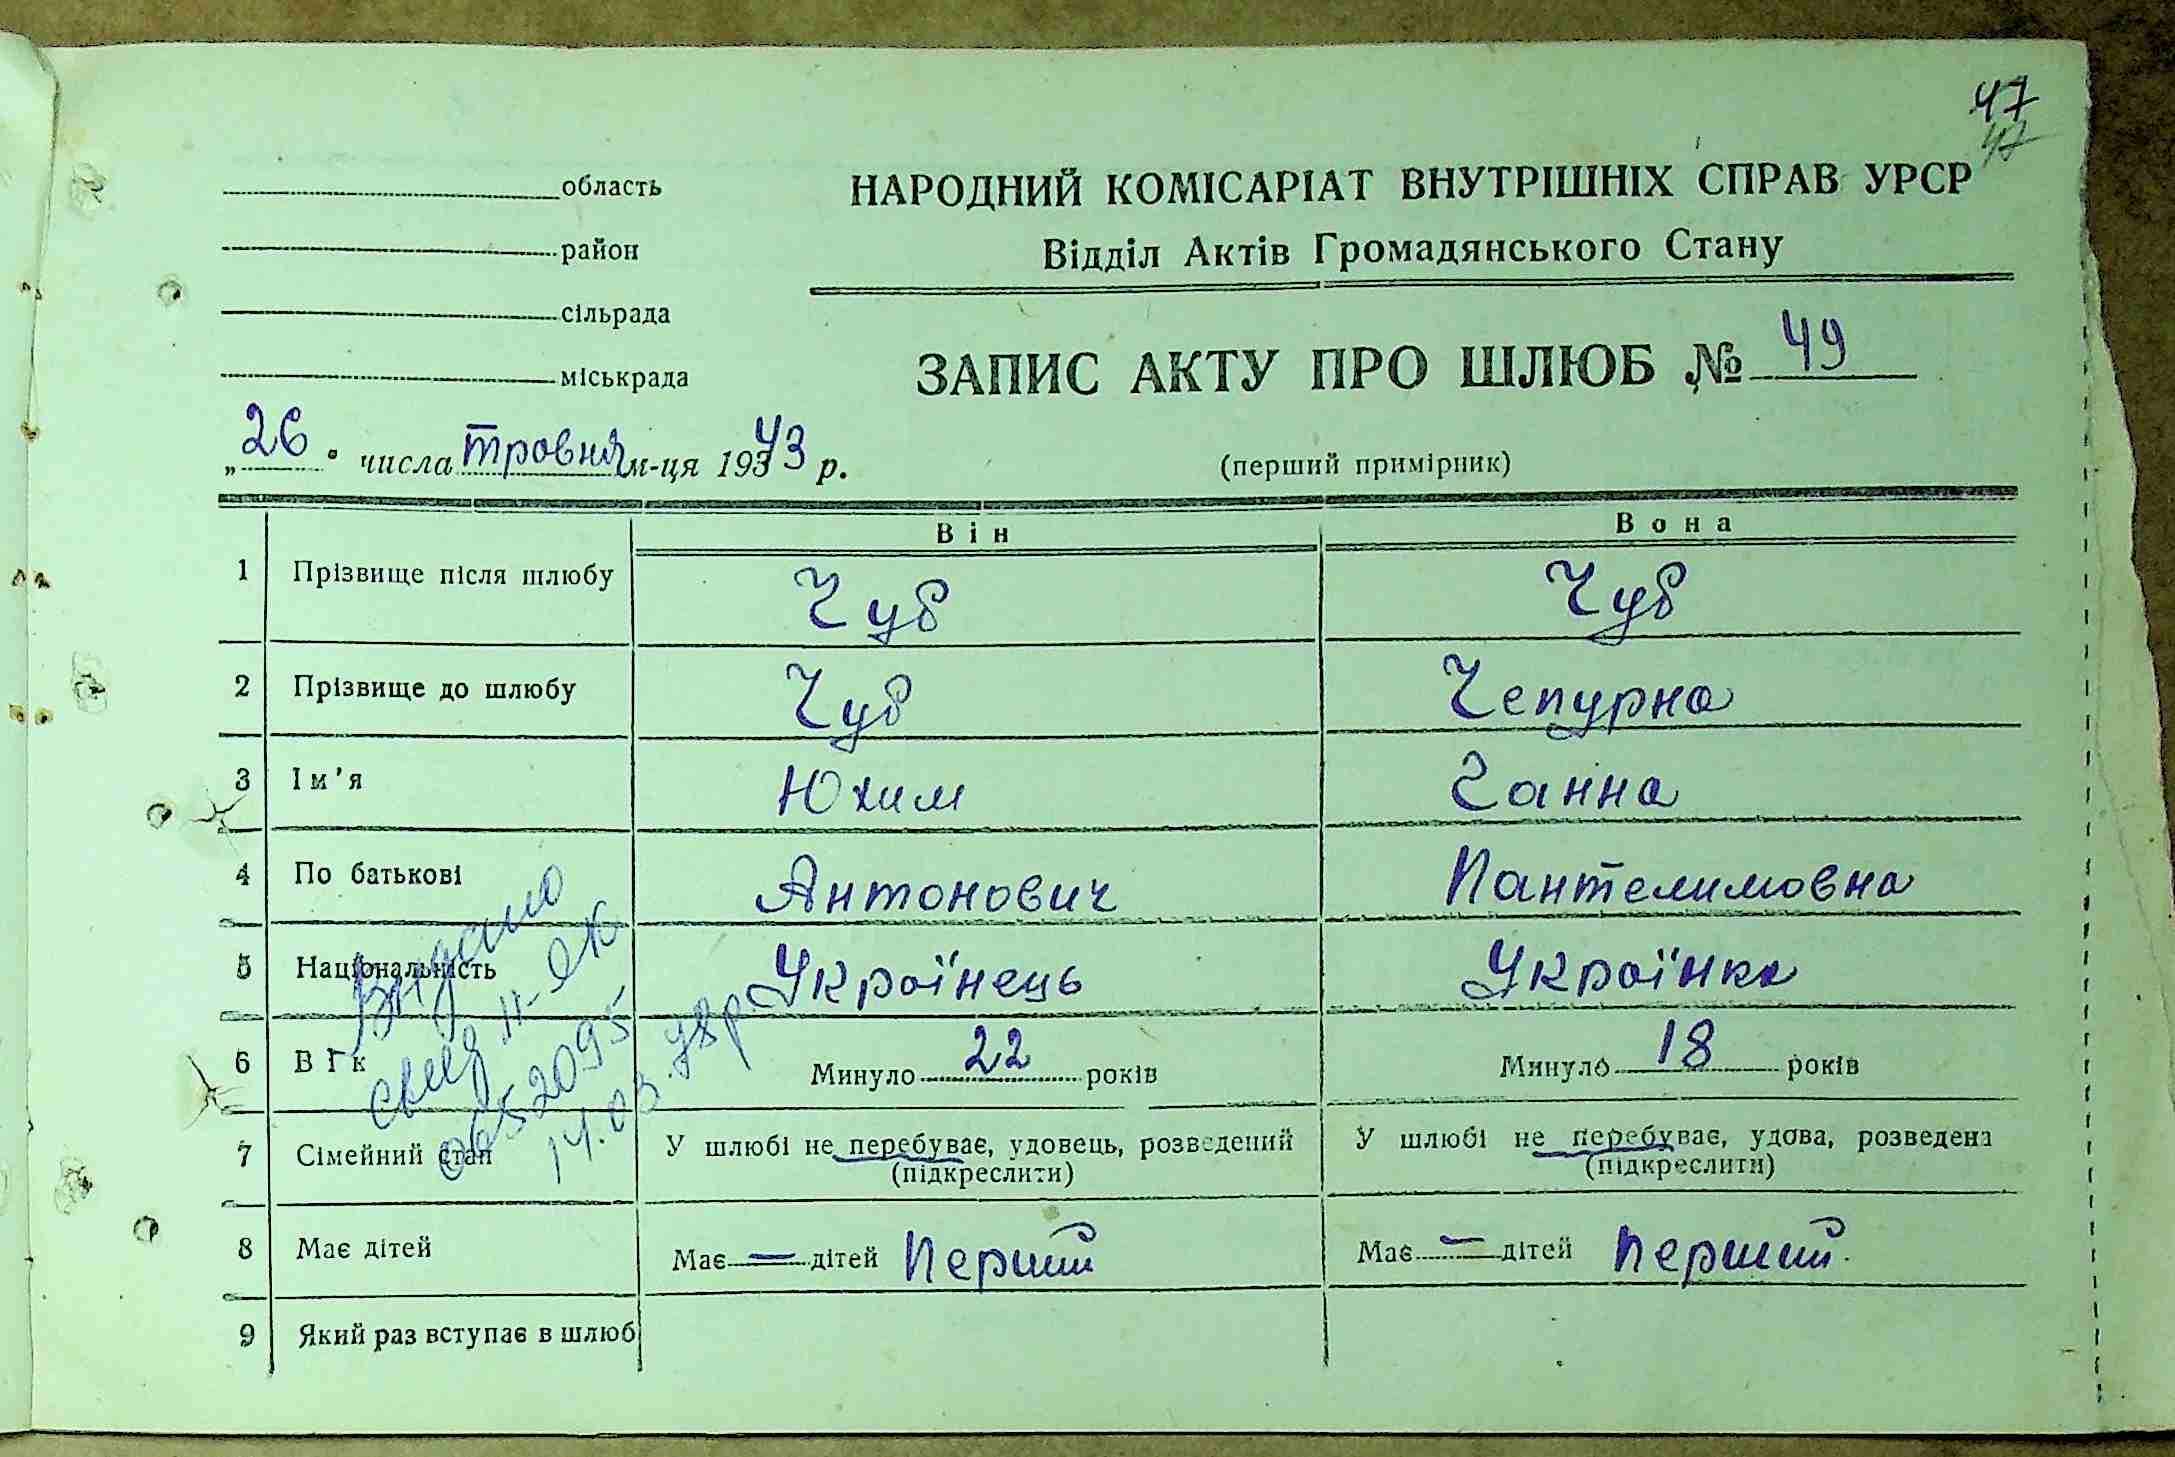 47
47
область
район
сільрада
міськрада
НАРОДНИЙ КОМІСАРІАТ ВНУТРІШНІХ СПРАВ УРСР
Відділ Актів Громадянського Стану
ЗАПИС АКТУ ПРО ШЛЮБ № 49
„26" числа травня м-ця 1943 р.
(перший примірник)
Він
Вона
1 Прізвище після шлюбу Чуб Чуб
2 Прізвище до шлюбу Чуб Чепурна
3 Ім'я Юхим Ганна
4 По батькові Антонович Пантелимовна
5 Національність Українець Українка
6 Вік Минуло 22 років Минуло 18 років
7 Сімейний стан У шлюбі не перебуває, удовець, розведений У шлюбі не перебуває, удова, розведена
(підкреслити) (підкреслити)
8 Має дітей Має — дітей Перший Має — дітей Перший.
9 Який раз вступає в шлюб
Видано